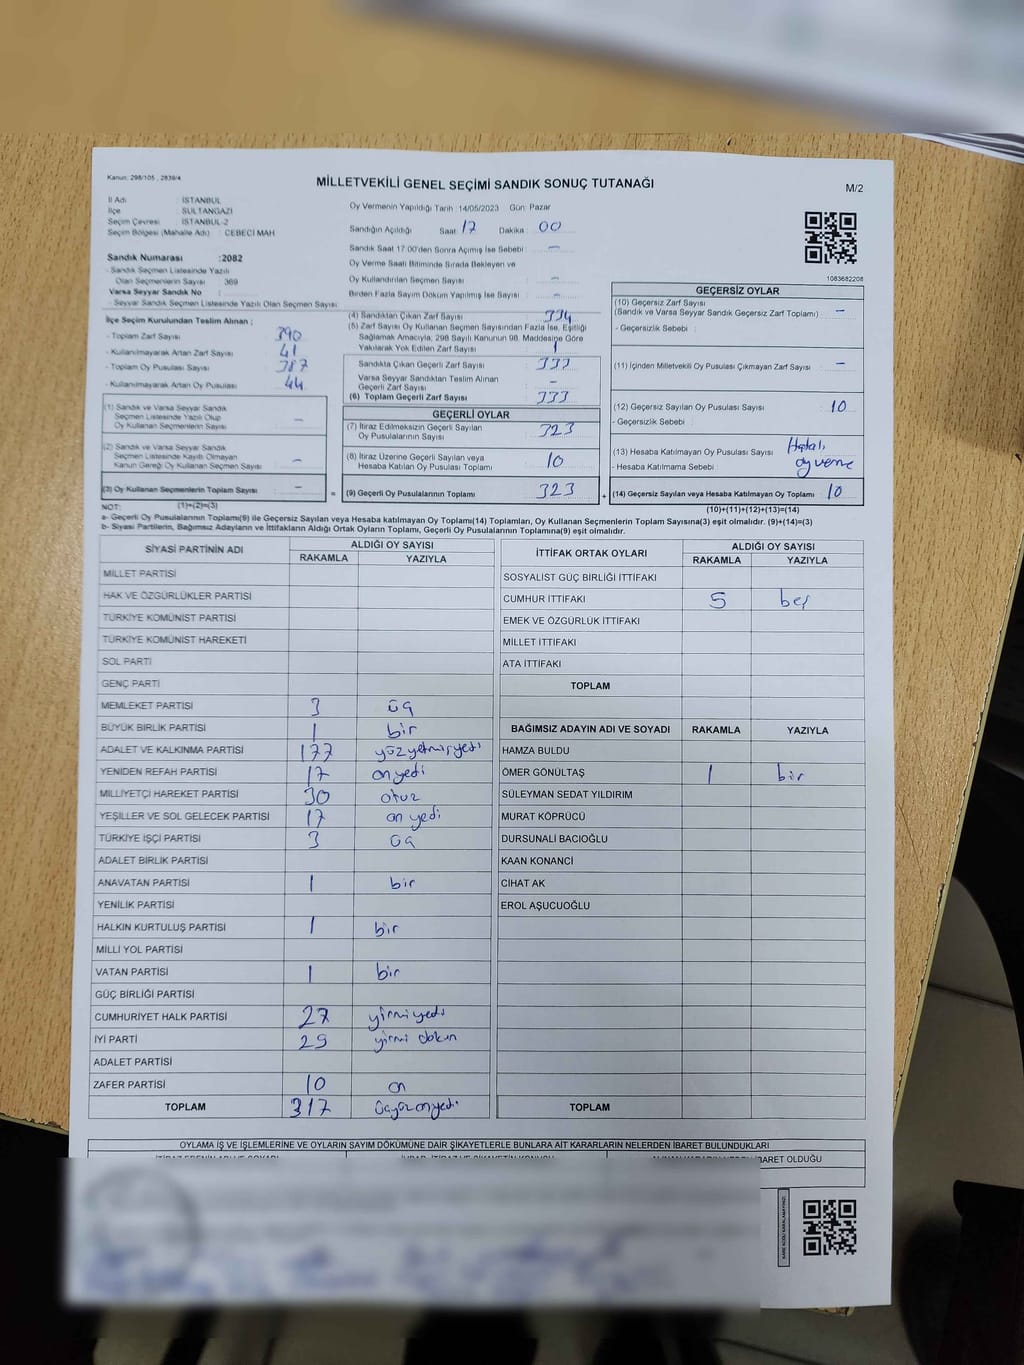 Kanun: 298/105 , 2839/4
MİLLETVEKİLİ GENEL SEÇİMİ SANDIK SONUÇ TUTANAĞI
M/2
İl Adı : İSTANBUL
İlçe : SULTANGAZİ
Seçim Çevresi : İSTANBUL-2
Seçim Bölgesi (Mahalle Adı) : CEBECİ MAH
Sandık Numarası :2082
- Sandık Seçmen Listesinde Yazılı
Olan Seçmenlerin Sayısı : 369
Varsa Seyyar Sandık No :
- Seyyar Sandık Seçmen Listesinde Yazılı Olan Seçmen Sayısı:
Oy Vermenin Yapıldığı Tarih :14/05/2023 Gün: Pazar
Sandığın Açıldığı Saat: 17 Dakika : 00
Sandık Saat 17.00'den Sonra Açılmış İse Sebebi : -
Oy Verme Saati Bitiminde Sırada Bekleyen ve
Oy Kullandırılan Seçmen Sayısı : -
Birden Fazla Sayım Döküm Yapılmış İse Sayısı : -
1083682208
İlçe Seçim Kurulundan Teslim Alınan ;
- Toplam Zarf Sayısı 390
- Kullanılmayarak Artan Zarf Sayısı 41
- Toplam Oy Pusulası Sayısı 387
- Kullanılmayarak Artan Oy Pusulası 44
(1) Sandık ve Varsa Seyyar Sandık
Seçmen Listesinde Yazılı Olup
Oy Kullanan Seçmenlerin Sayısı : -
(2) Sandık ve Varsa Seyyar Sandık
Seçmen Listesinde Kayıtlı Olmayan
Kanun Gereği Oy Kullanan Seçmen Sayısı : -
(3) Oy Kullanan Seçmenlerin Toplam Sayısı : -
(4) Sandıktan Çıkan Zarf Sayısı 334
(5) Zarf Sayısı Oy Kullanan Seçmen Sayısından Fazla İse, Eşitliği
Sağlamak Amacıyla; 298 Sayılı Kanunun 98. Maddesine Göre
Yakılarak Yok Edilen Zarf Sayısı : 1
Sandıkta Çıkan Geçerli Zarf Sayısı : 333
Varsa Seyyar Sandıktan Teslim Alınan
Geçerli Zarf Sayısı : -
(6) Toplam Geçerli Zarf Sayısı : 333
GEÇERLİ OYLAR
(7) İtiraz Edilmeksizin Geçerli Sayılan
Oy Pusulalarının Sayısı : 323
(8) İtiraz Üzerine Geçerli Sayılan veya
Hesaba Katılan Oy Pusulası Toplamı : 10
= (9) Geçerli Oy Pusulalarının Toplamı : 323
GEÇERSİZ OYLAR
(10) Geçersiz Zarf Sayısı
(Sandık ve Varsa Seyyar Sandık Geçersiz Zarf Toplamı) : -
- Geçersizlik Sebebi :
(11) İçinden Milletvekili Oy Pusulası Çıkmayan Zarf Sayısı : -
(12) Geçersiz Sayılan Oy Pusulası Sayısı : 10
- Geçersizlik Sebebi :
(13) Hesaba Katılmayan Oy Pusulası Sayısı : Hatalı
- Hesaba Katılmama Sebebi : oy verme
+ (14) Geçersiz Sayılan veya Hesaba Katılmayan Oy Toplamı : 10
NOT: (1)+(2)=(3)
(10)+(11)+(12)+(13)=(14)
a- Geçerli Oy Pusulaları Toplamı(9) ile Geçersiz Sayılan veya Hesaba katılmayan Oy Toplamı(14) Toplamları, Oy Kullanan Seçmenlerin Toplam Sayısına(3) eşit olmalıdır. (9)+(14)=(3)
b- Siyasi Partilerin, Bağımsız Adayların ve İttifakların Aldığı Ortak Oyların Toplamı, Geçerli Oy Pusulalarının Toplamına(9) eşit olmalıdır.
SİYASİ PARTİNİN ADI ALDIĞI OY SAYISI
RAKAMLA YAZIYLA
MİLLET PARTİSİ
HAK VE ÖZGÜRLÜKLER PARTİSİ
TÜRKİYE KOMÜNİST PARTİSİ
TÜRKİYE KOMÜNİST HAREKETİ
SOL PARTİ
GENÇ PARTİ
MEMLEKET PARTİSİ 3 üç
BÜYÜK BİRLİK PARTİSİ 1 bir
ADALET VE KALKINMA PARTİSİ 177 yüzyetmişyedi
YENİDEN REFAH PARTİSİ 17 onyedi
MİLLİYETÇİ HAREKET PARTİSİ 30 otuz
YEŞİLLER VE SOL GELECEK PARTİSİ 17 on yedi
TÜRKİYE İŞÇİ PARTİSİ 3 üç
ADALET BİRLİK PARTİSİ
ANAVATAN PARTİSİ 1 bir
YENİLİK PARTİSİ
HALKIN KURTULUŞ PARTİSİ 1 bir
MİLLİ YOL PARTİSİ
VATAN PARTİSİ 1 bir
GÜÇ BİRLİĞİ PARTİSİ
CUMHURİYET HALK PARTİSİ 27 yirmiyedi
İYİ PARTİ 29 yirmi dokuz
ADALET PARTİSİ
ZAFER PARTİSİ 10 on
TOPLAM 317 üçyüzonyedi
İTTİFAK ORTAK OYLARI ALDIĞI OY SAYISI
RAKAMLA YAZIYLA
SOSYALİST GÜÇ BİRLİĞİ İTTİFAKI
CUMHUR İTTİFAKI 5 beş
EMEK VE ÖZGÜRLÜK İTTİFAKI
MİLLET İTTİFAKI
ATA İTTİFAKI
TOPLAM
BAĞIMSIZ ADAYIN ADI VE SOYADI RAKAMLA YAZIYLA
HAMZA BULDU
ÖMER GÖNÜLTAŞ 1 bir
SÜLEYMAN SEDAT YILDIRIM
MURAT KÖPRÜCÜ
DURSUNALİ BACIOĞLU
KAAN KONANCİ
CİHAT AK
EROL AŞUCUOĞLU
TOPLAM
OYLAMA İŞ VE İŞLEMLERİNE VE OYLARIN SAYIM DÖKÜMÜNE DAİR ŞİKAYETLERLE BUNLARA AİT KARARLARIN NELERDEN İBARET BULUNDUKLARI
İBARET OLDUĞU